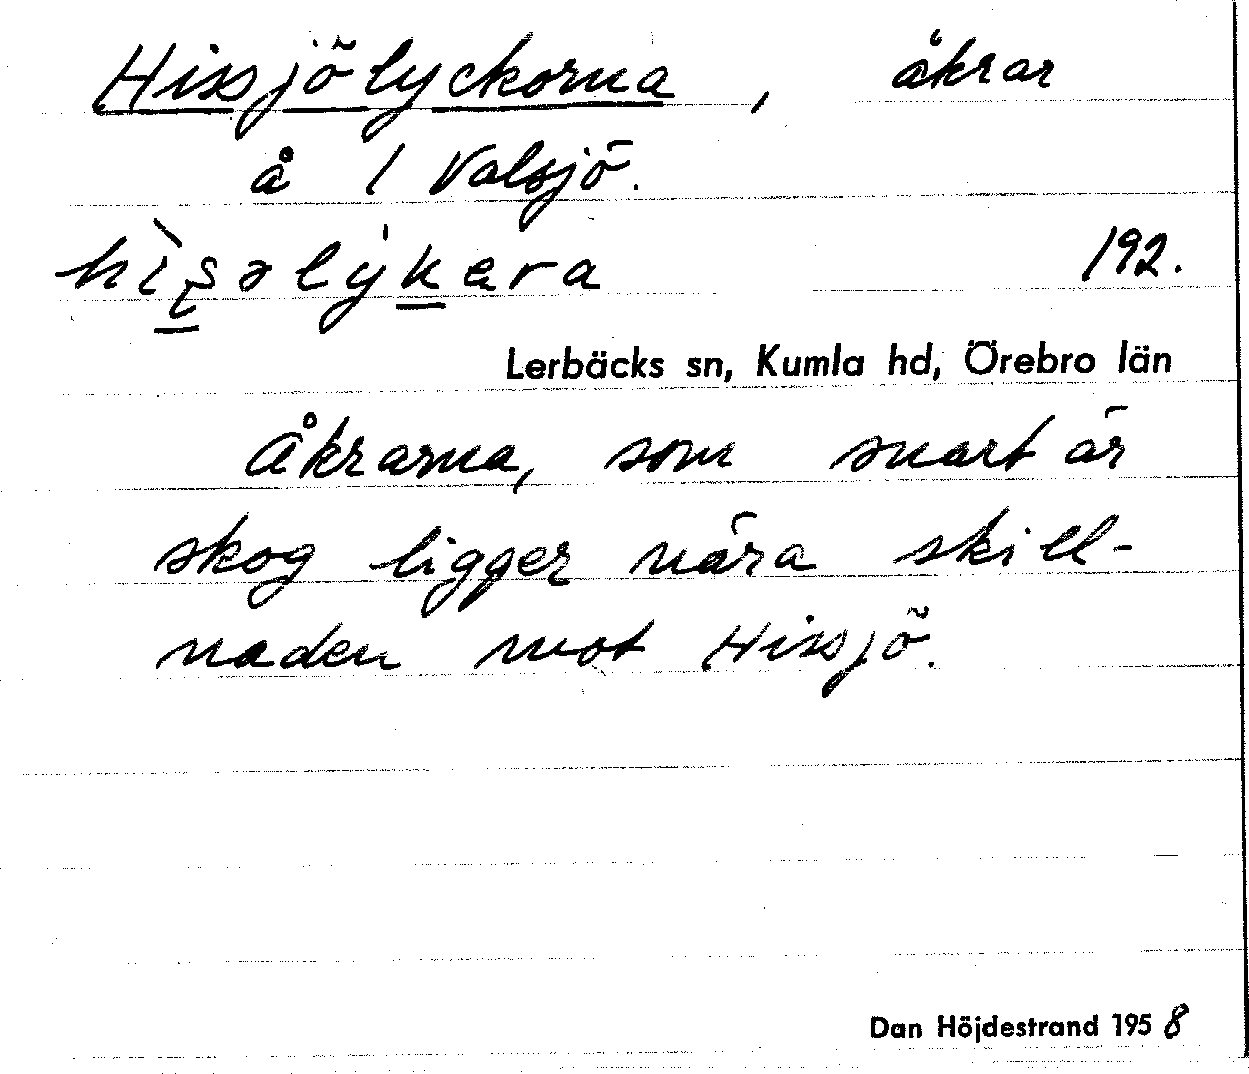 Hissjölyckorna, åkrar
å 1 Valsjö.
192.
Lerbäcks sn, Kumla hd, Örebro län
Åkrarna, som snart är
skog ligger nära skill-
naden mot Hissjö.
Dan Höjdestrand 1958